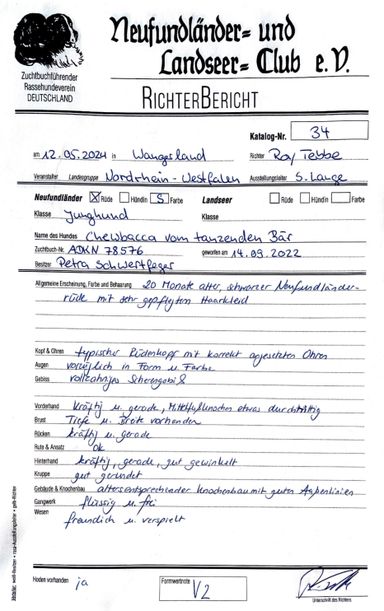 Neufundländer= und
Landseer= Club e.V.
Zuchtbuchführender
Rassehundeverein
DEUTSCHLAND
RICHTERBERICHT
Katalog-Nr. 34
am 12.05.2024 in Wangerland Richter Roy Tebbe
Veranstalter Landesgruppe Nordrhein-Westfalen Ausstellungsleiter S. Lange
Neufundländer X Rüde Hündin S Farbe Landseer Rüde Hündin Farbe
Klasse Junghund Klasse
Name des Hundes Chewbacca vom tanzenden Bär
Zuchtbuch-Nr. ADKN 78576 geworfen am 14.09.2022
Besitzer Petra Schwertfeger
Allgemeine Erscheinung, Farbe und Behaarung 20 Monate alter, schwarzer Neufundländer-
rüde mit sehr gepflegtem Haarkleid
Kopf & Ohren typischer Rüdenkopf mit korrekt angesetzten Ohren
Augen vorzüglich in Form u. Farbe
Gebiss vollzahniges Scherengebiß
Vorderhand kräftig u. gerade, Mittelfußknochen etwas durchtrittig
Brust Tiefe u. Breite vorhanden
Rücken kräftig u. gerade
Rute & Ansatz ok
Hinterhand kräftig, gerade, gut gewinkelt
Kruppe gut gerundet
Gebäude & Knochenbau altersentsprechender Knochenbau mit guten Außenlinien
Gangwerk flüssig u. frei
Wesen freundlich u. verspielt
Hoden vorhanden ja
Formwertnote V2
Unterschrift des Richters